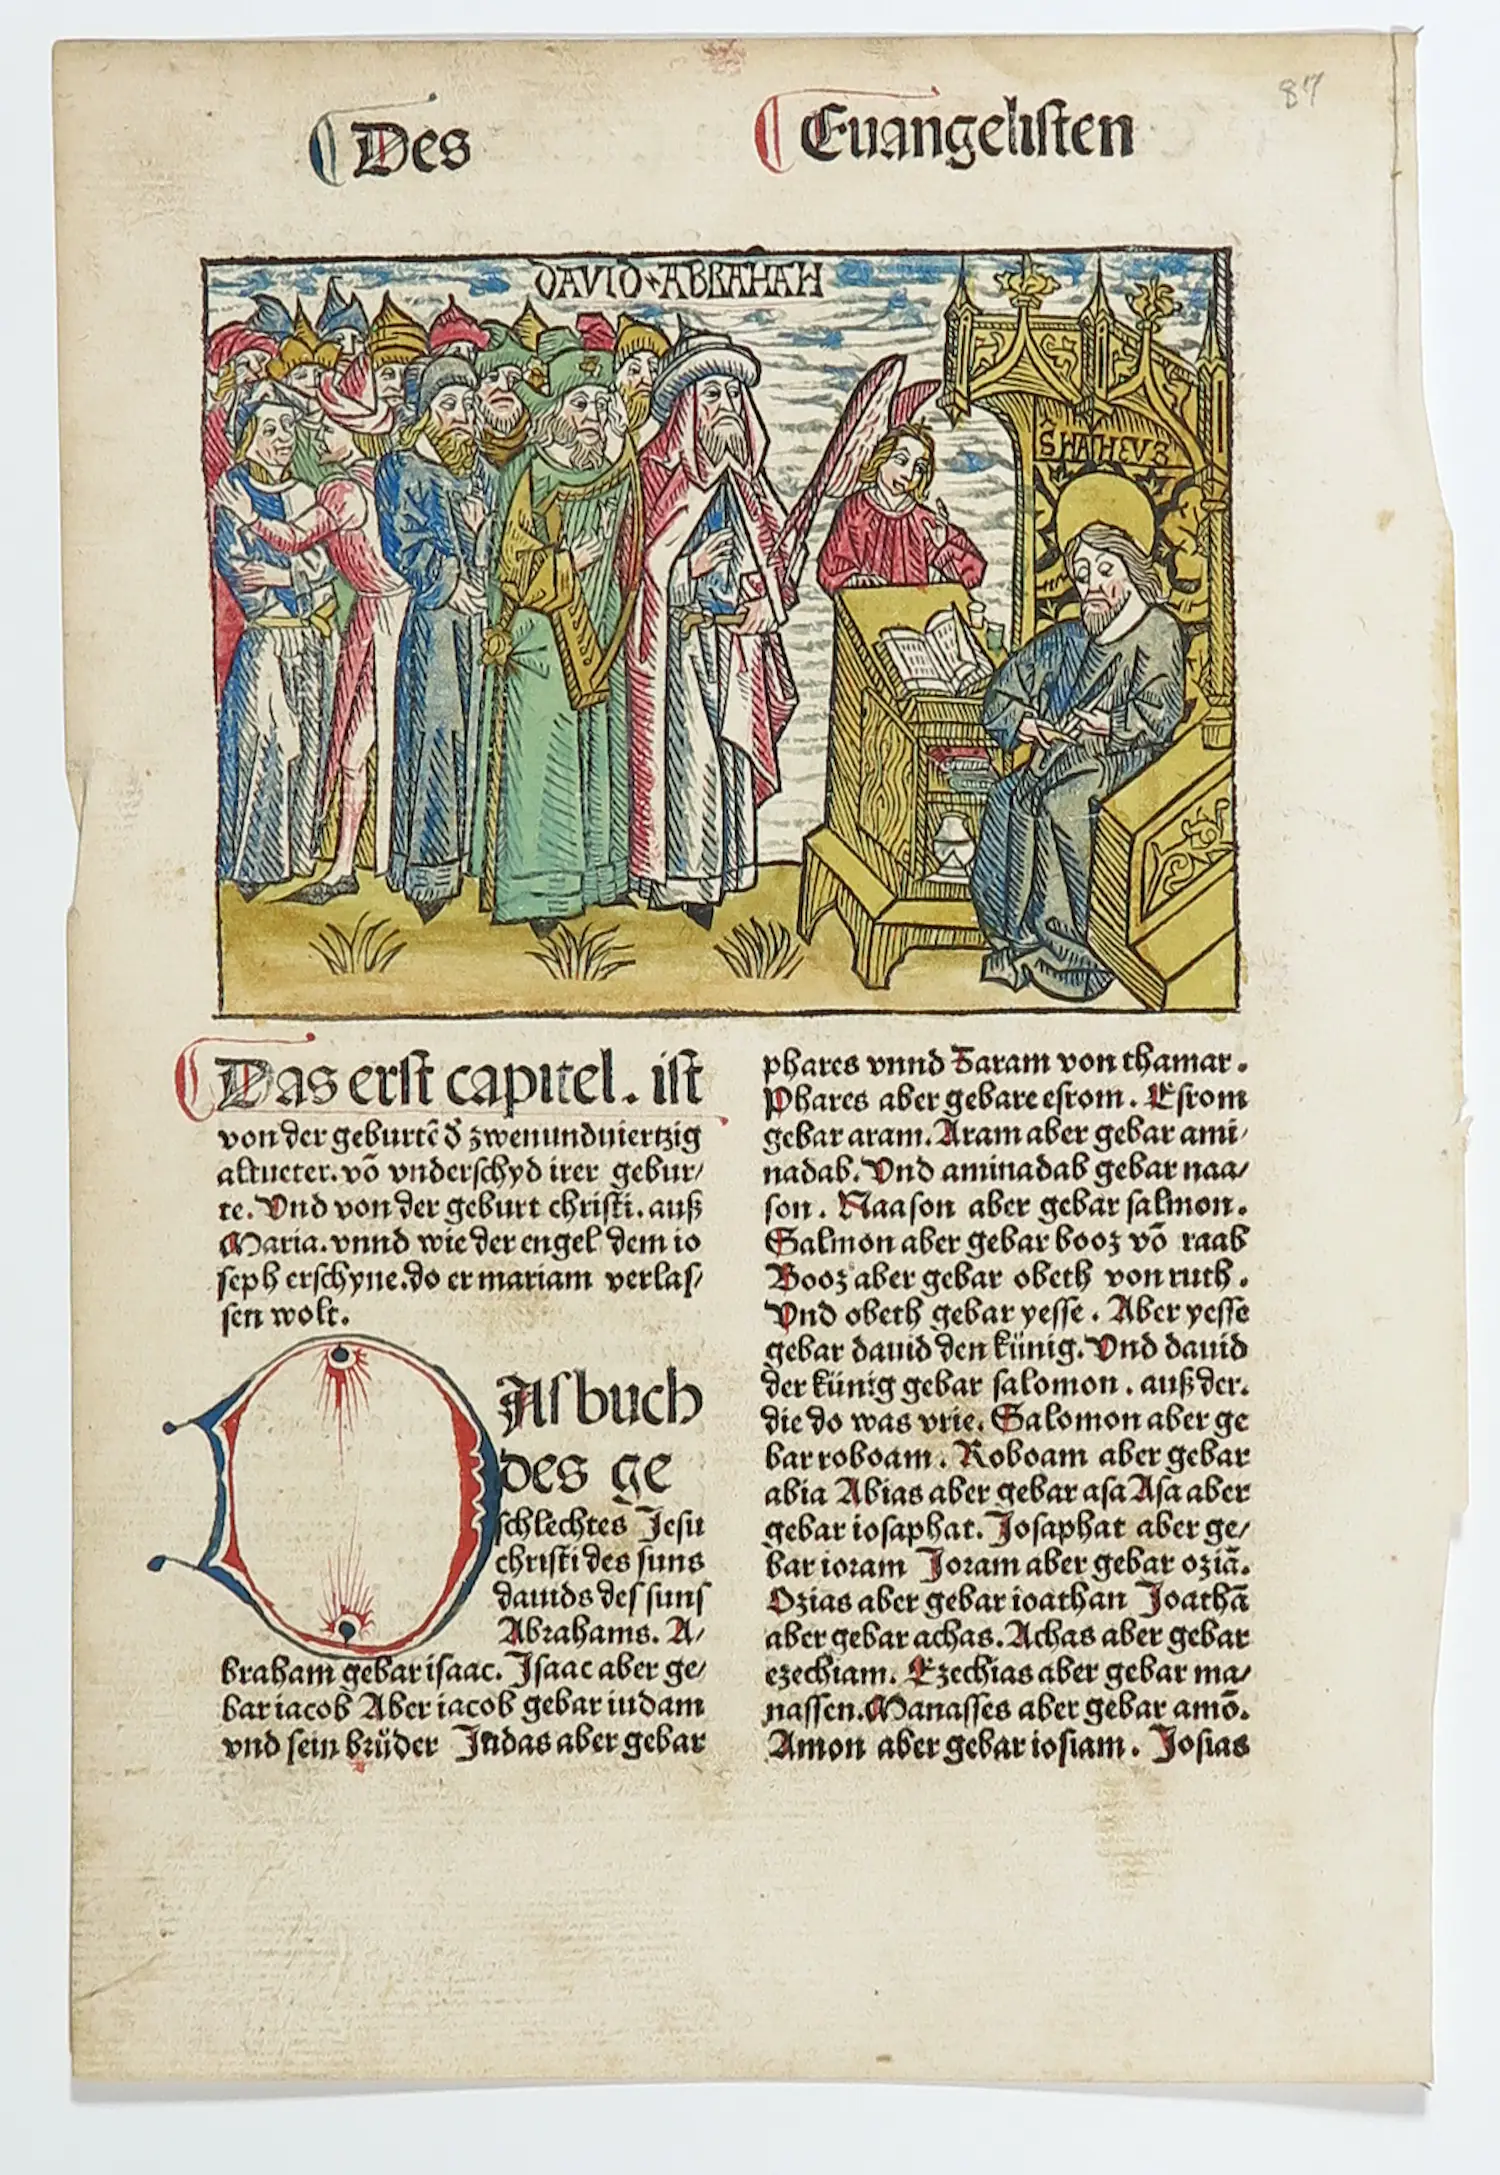 87
Des Euangelisten
DAVID ABRAHAM
S MATHEVS
Das erst capitel. ist
von der geburtē d̄ zwenundviertzig
altueter. vō vnderschyd irer gebur/
te. Vnd von der geburt christi. auß
Maria. vnnd wie der engel dem io
seph erschyne. do er mariam verlas/
sen wolt.
DAs buch
des ge
schlechtes Jesu
christi des suns
dauids des suns
Abrahams. A/
braham gebar isaac. Isaac aber ge/
bar iacob Aber iacob gebar iudam
vnd sein brůder Judas aber gebar
phares vnnd Zaram von thamar.
Phares aber gebare esrom. Esrom
gebar aram. Aram aber gebar ami/
nadab. Vnd aminadab gebar naa/
son. Naason aber gebar salmon.
Salmon aber gebar booz vō raab
Booz aber gebar obeth von ruth.
Vnd obeth gebar yesse. Aber yesse
gebar dauid den künig. Vnd dauid
der künig gebar salomon. auß der.
die do was vrie. Salomon aber ge
bar roboam. Roboam aber gebar
abia Abias aber gebar asa Asa aber
gebar iosaphat. Josaphat aber ge/
bar ioram Joram aber gebar oziā.
Ozias aber gebar ioathan Joathā
aber gebar achas. Achas aber gebar
ezechiam. Ezechias aber gebar ma/
nassen. Manasses aber gebar amō.
Amon aber gebar iosiam. Josias